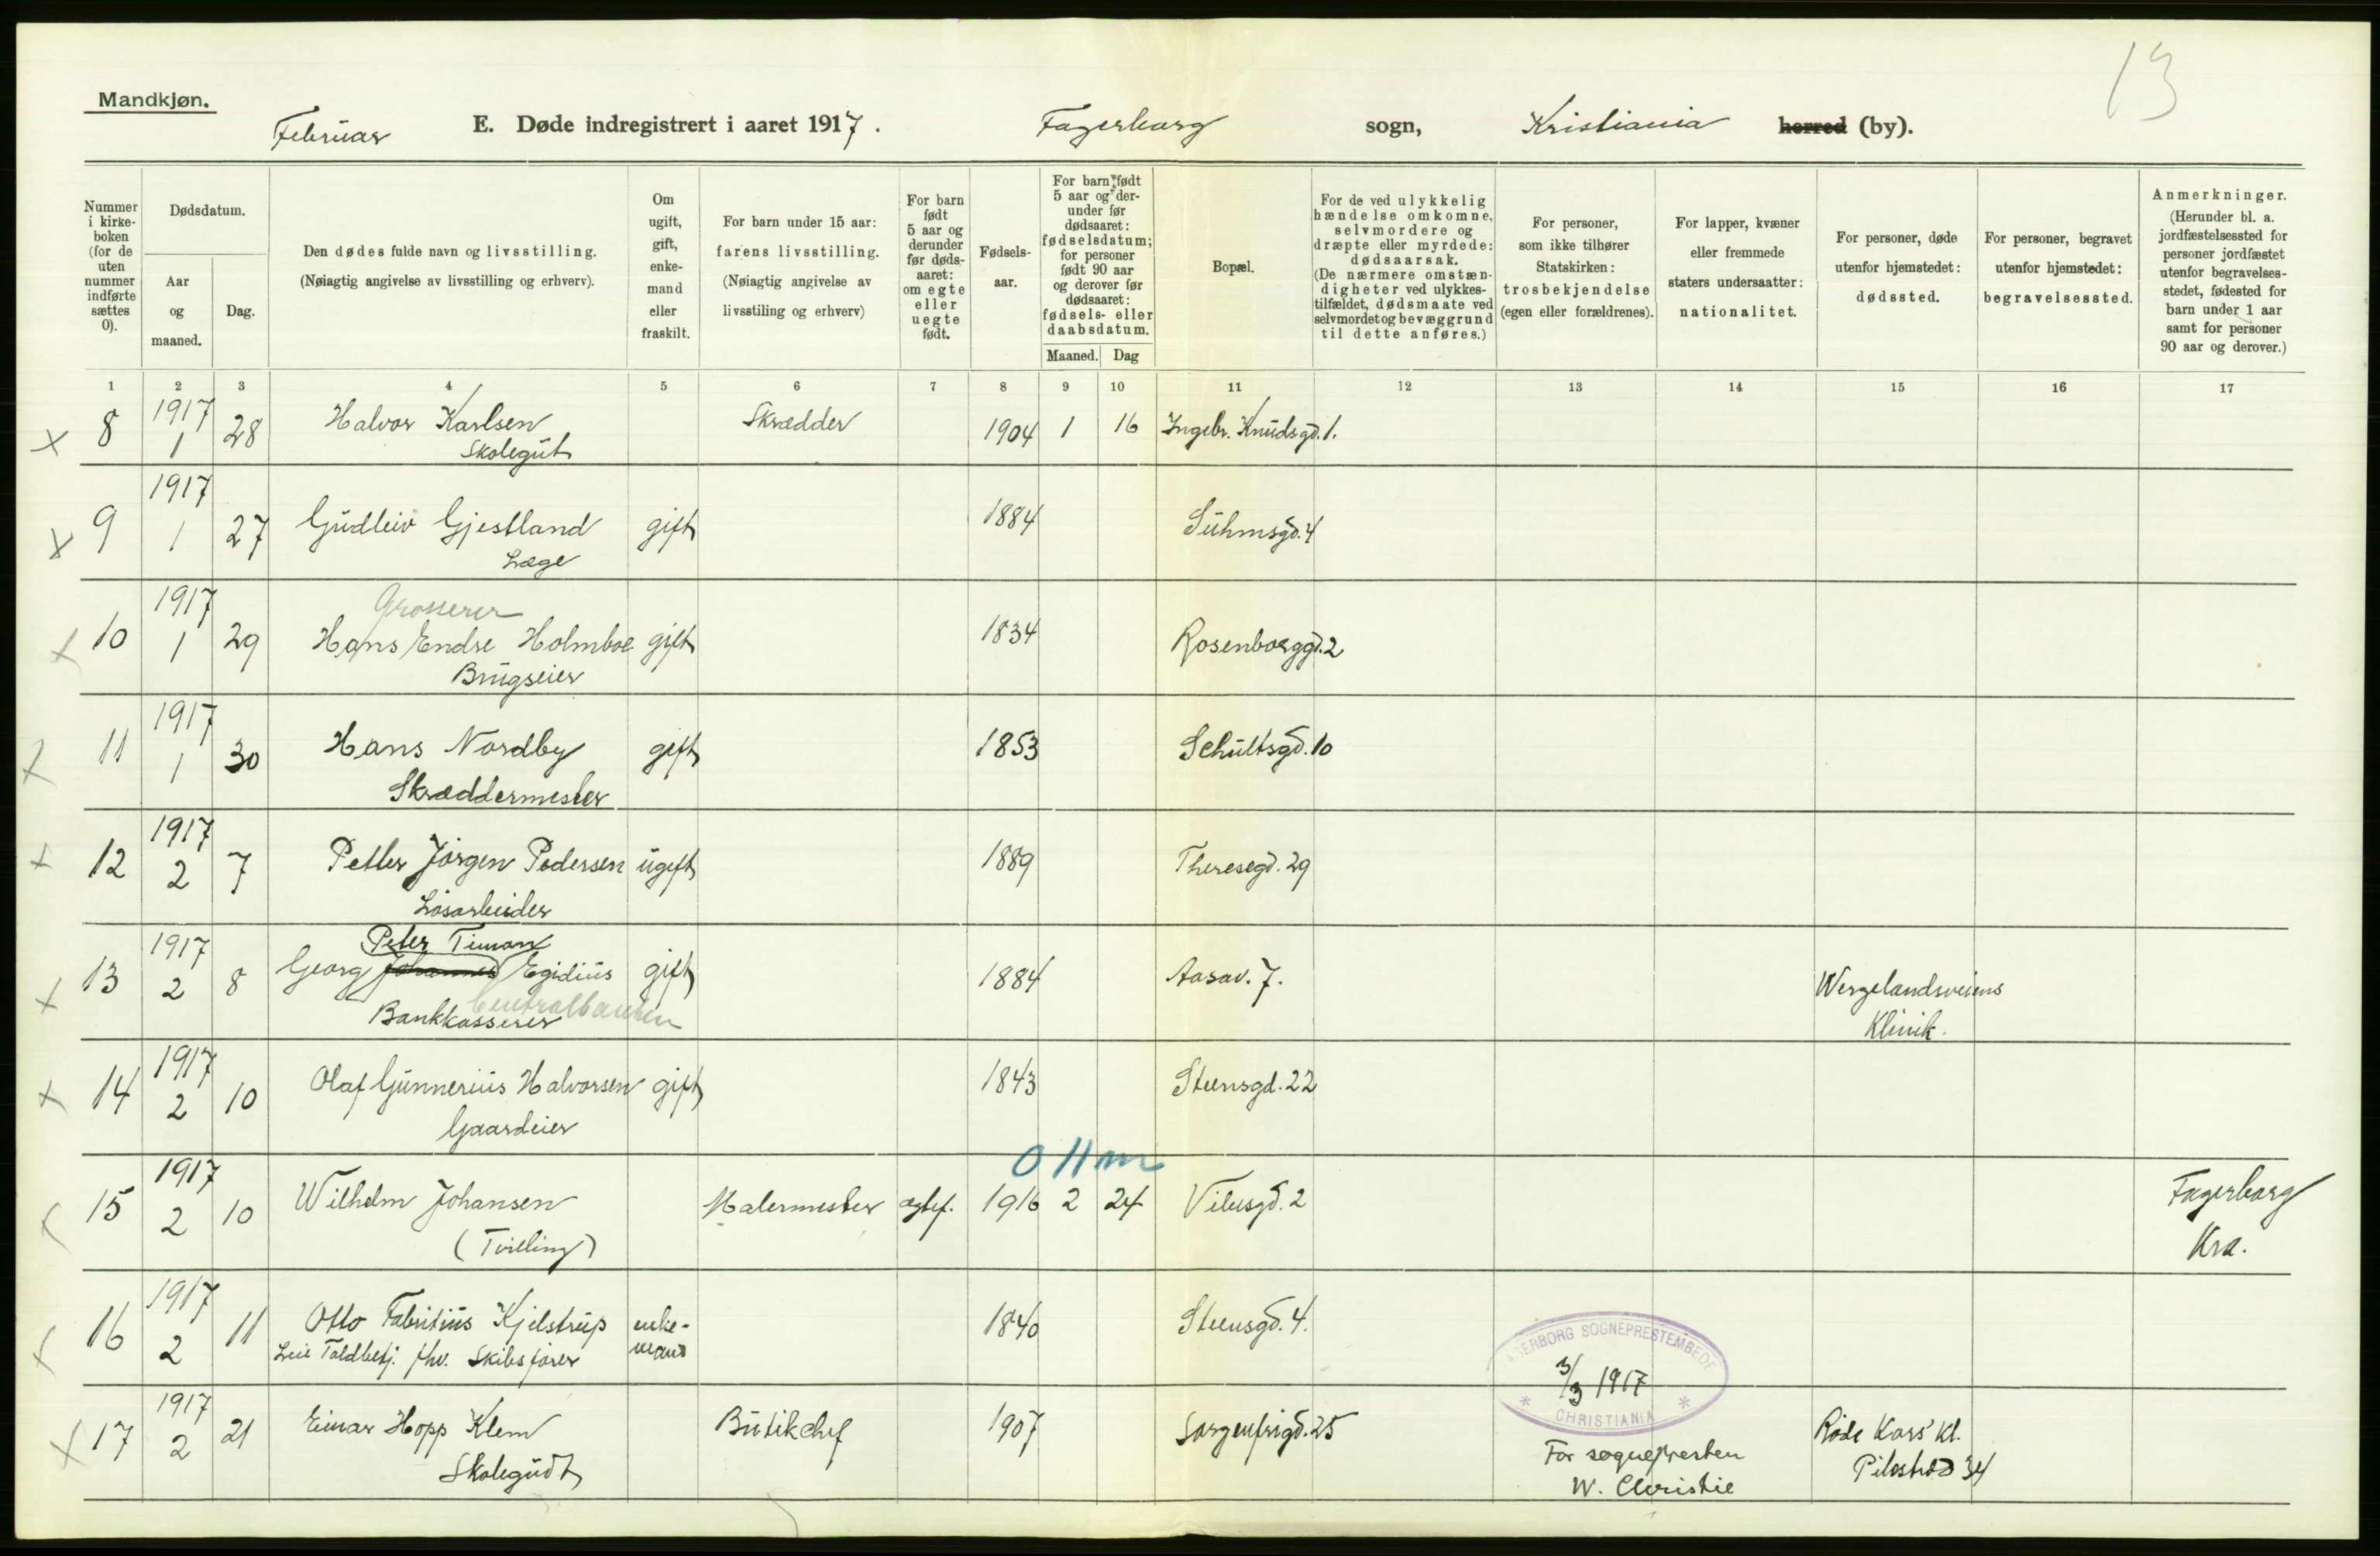 13
Mandkjøn.
Februar E. Døde indregistrert i aaret 1917. Fagerborg sogn, Kristiania herred (by).
Nummer i kirkeboken (for de uten nummer indførte sættes 0).
Dødsdatum.
Aar og maaned.
Dag.
Den dødes fulde navn og livsstilling.
(Nøiagtig angivelse av livsstilling og erhverv).
Om ugift, gift, enkemand eller fraskilt.
For barn under 15 aar:
farens livsstilling.
(Nøiagtig angivelse av
livsstiling og erhverv)
For barn født 5 aar og derunder før dødsaaret: om egte eller uegte født.
Fødsels-aar.
For barn født 5 aar og derunder før dødsaaret: fødselsdatum; for personer født 90 aar og derover før dødsaaret: fødsels- eller daabsdatum.
Maaned. Dag
Bopæl.
For de ved ulykkelig hændelse omkomne, selvmordere og dræpte eller myrdede: dødsaarsak.
(De nærmere omstændigheter ved ulykkestilfældet, dødsmaate ved selvmordet og bevæggrund til dette anføres.)
For personer, som ikke tilhører Statskirken: trosbekjendelse (egen eller forældrenes).
For lapper, kvæner eller fremmede staters undersaatter: nationalitet.
For personer, døde utenfor hjemstedet: dødssted.
For personer, begravet utenfor hjemstedet: begravelsessted.
Anmerkninger.
(Herunder bl. a. jordfæstelsessted for personer jordfæstet utenfor begravelsesstedet, fødested for barn under 1 aar samt for personer 90 aar og derover.)
1 2 3 4 5 6 7 8 9 10 11 12 13 14 15 16 17
8 1917 1 28 Halvor Karlsen Skrædder 1904 1 16 Ingebr. Knudsgd. 1.
Skolegut
9 1917 1 27 Gudleiv Gjestland gift 1884 Suhmsgd. 4
Læge
Grosserer
10 1917 1 29 Hans Endre Holmboe gift 1834 Rosenborggd. 2
Brugseier
11 1917 1 30 Hans Nordby gift 1853 Schultsgd. 10
Skræddermester
12 1917 2 7 Petter Jörgen Pedersen ugift 1889 Theresegd. 29
Lösarbeider
Peter Timan
13 1917 2 8 Georg Johannes Egidius gift 1884 Aasav. 7. Wergelandsveiens
Centralbanken
Bankkasserer Klinik.
14 1917 2 10 Olaf Gunnerius Halvorsen gift 1843 Steensgd. 22
Gaardeier
0 11 m
15 1917 2 10 Wilhelm Johansen Malermester ægtef. 1916 2 24 Vibesgd. 2 Fagerborg
(Tvilling) Kra.
16 1917 2 11 Otto Fabritius Kjelstrup enke-mand 1840 Steensgd. 4.
Toldbetj. fhv. Skibsförer
FAGERBORG SOGNEPRESTEMBEDE
3/3 1917
* CHRISTIANIA *
17 1917 2 21 Einar Hopp Klem Butikchef 1907 Sorgenfrigd. 25 Röde Kors' Kl.
Skolegudt Pilestræd 34
For sognepresten
W. Christie